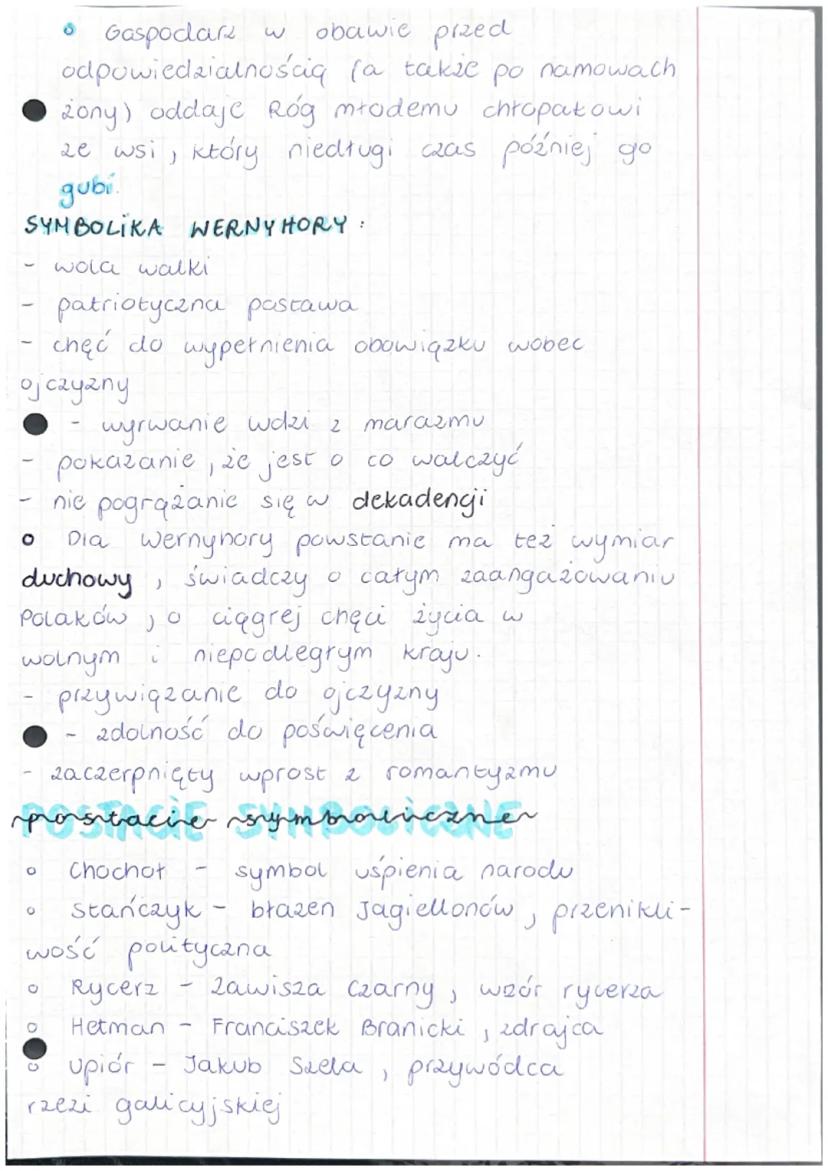 ◦ Gospodarz w obawie przed
odpowiedzialnością (a także po namowach
żony) oddaje Róg młodemu chłopakowi
ze wsi, który niedługi czas później go
gubi.
SYMBOLIKA WERNYHORY:
- wola walki
- patriotyczna postawa
- chęć do wypełnienia obowiązku wobec
ojczyzny
- wyrwanie ludzi z marazmu
- pokazanie, że jest o co walczyć
- nie pogrążanie się w dekadencji
◦ Dla Wernyhory powstanie ma też wymiar
duchowy, świadczy o całym zaangażowaniu
Polaków, o ciągłej chęci życia w
wolnym i niepodległym kraju.
- przywiązanie do ojczyzny
- zdolność do poświęcenia
- zaczerpnięty wprost z romantyzmu
postacie symboliczne
◦ Chochoł - symbol uśpienia narodu
◦ Stańczyk - błazen Jagiellonów, przenikli-
wość polityczna
◦ Rycerz - Zawisza Czarny, wzór rycerza
◦ Hetman - Franciszek Branicki, zdrajca
◦ Upiór - Jakub Szela, przywódca
rzezi galicyjskiej